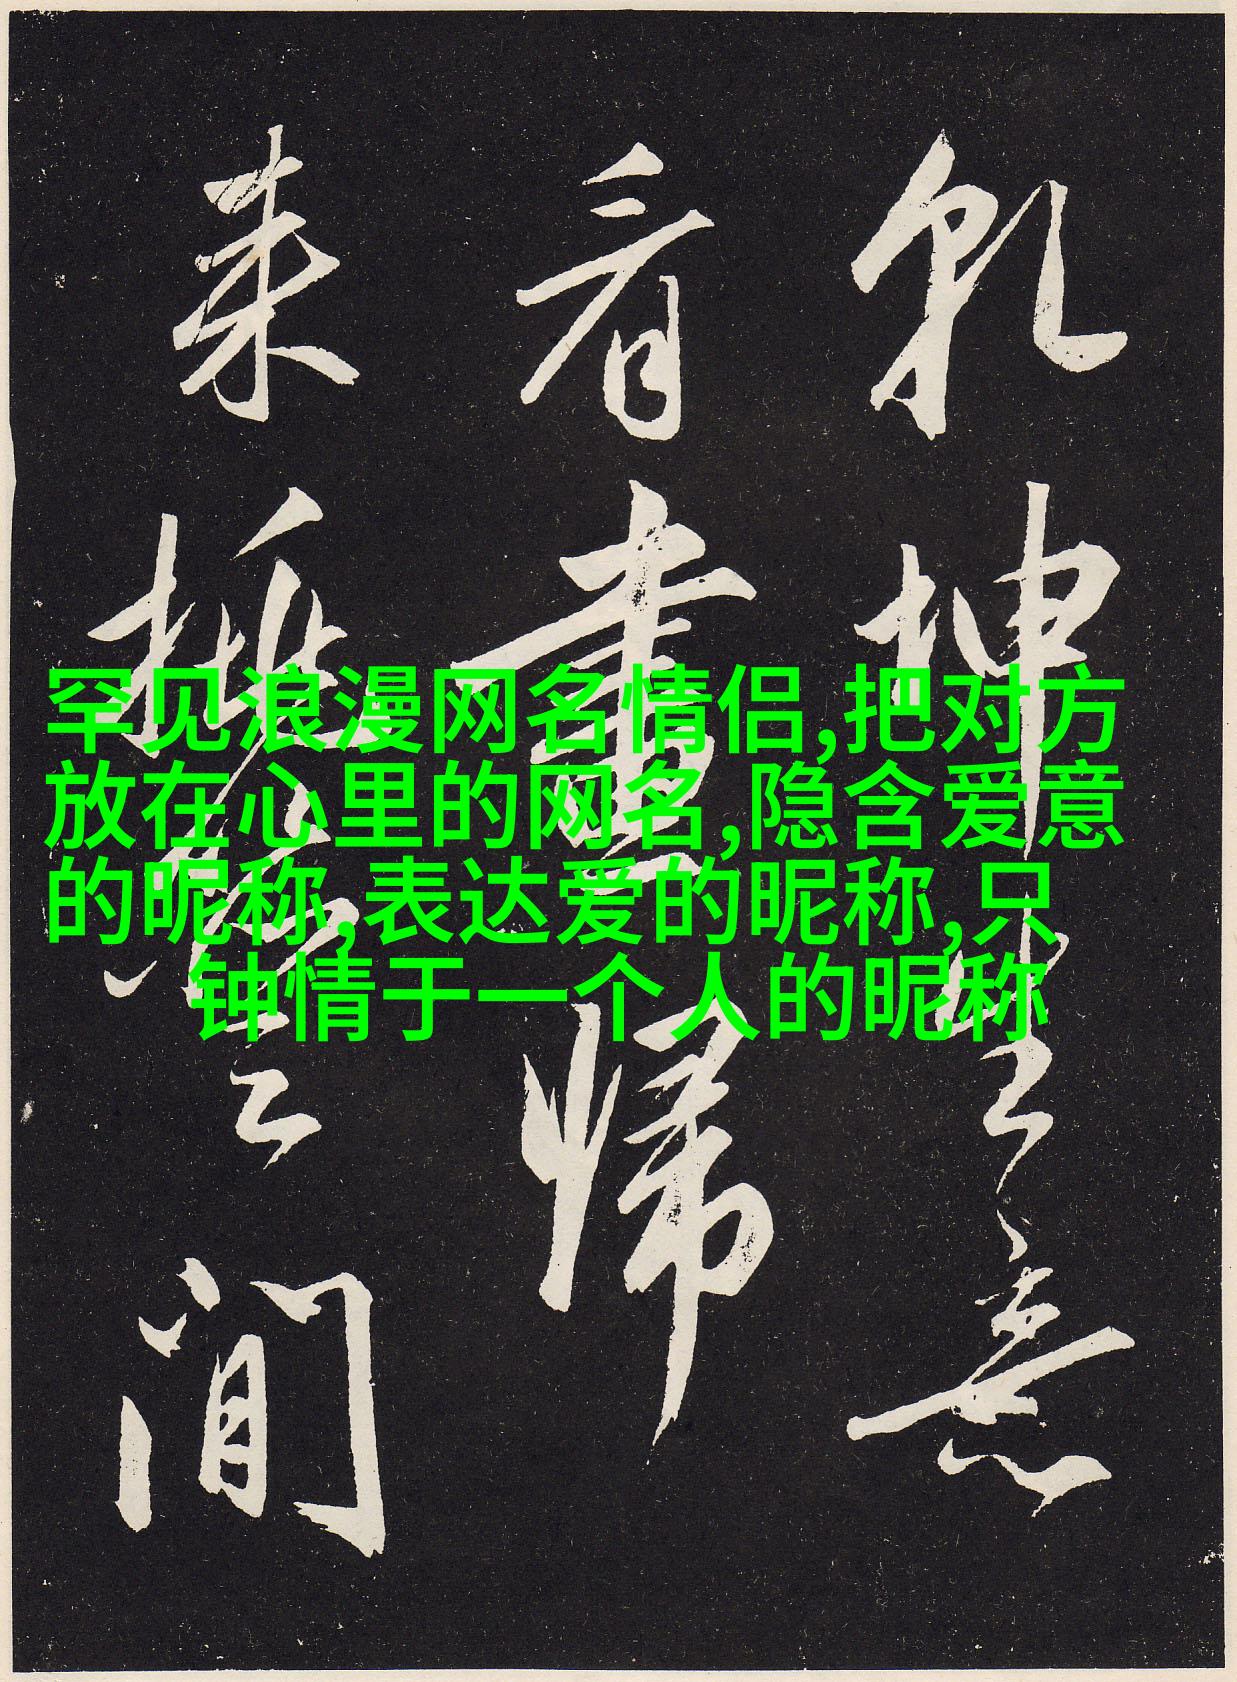 罕见浪漫网名情侣,把对方
放在心里的网名,隐含爱意
的昵称,表达爱的昵称,只
钟情于一个人的昵称
坤生意
看畫歸
来
間